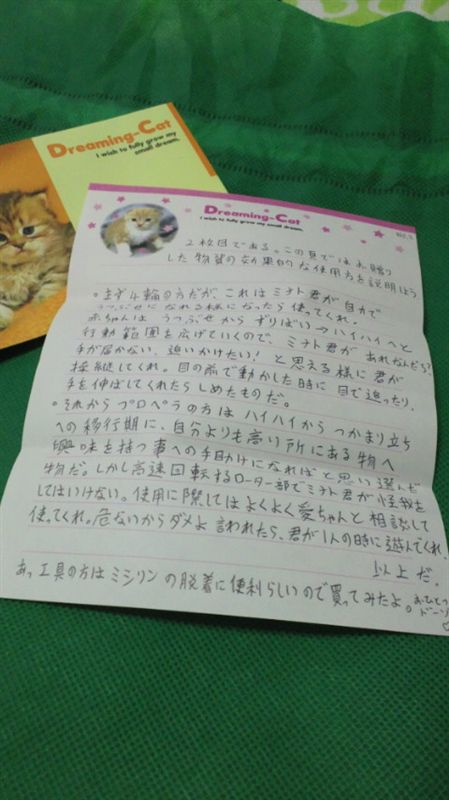 Dreaming-Cat
I wish to fully grow my
small dream.
Dreaming-Cat
I wish to fully grow my small dream.
2枚目である。この頁ではお贈り
した物資の効果的な使用方を説明しよう
・まず4輪の方だが、これはミナト君が自力で
うつぶせになれる様になったら使ってくれ。
赤ちゃんは うつぶせから ずりばい→ハイハイへと
行動範囲を広げていくので ミナト君が あれなんだろ?
手が届かない、追いかけたい!と思える様に君が
操縦してくれ。目の前で動かした時に 目で追ったり、
手を伸ばしてくれたらしめたものだ。
・それから プロペラの方は ハイハイから つかまり立ち
への移行期に、自分よりも高い所にある物へ
興味を持つ事への手助けになればと思い選んだ
物だ。しかし高速回転するローター部でミナト君が怪我を
してはいけない。使用に際してはよくよく愛ちゃんと相談して
使ってくれ。危ないからダメよ 言われたら、君が1人の時に遊んでくれ。
以上だ。
あっ工具の方は ミシリンの脱着に便利らしいので買ってみたよ。
おひとつ
ドーゾ